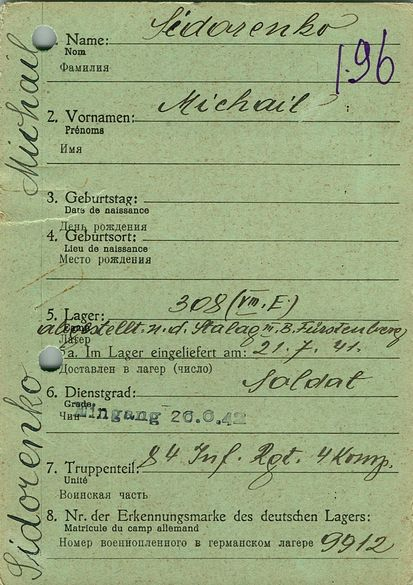 Sidorenko Michail
1. Name: Sidorenko
Nom
Фамилия
196
2. Vornamen: Michail
Prénoms
Имя
3. Geburtstag:
Date de naissance
День рождения
4. Geburtsort:
Lieu de naissance
Место рождения
5. Lager: 308 (VIII. E.)
abgestellt. n. d. Stalag III. B. Fürstenberg
Лагер
5a. Im Lager eingeliefert am: 21. 7. 41.
Доставлен в лагер (число)
6. Dienstgrad: Soldat
Grade
Чин
Eingang 26.6.42
7. Truppenteil: 84 Inf. Rgt. 4 Komp.
Unité
Воинская часть
8. Nr. der Erkennungsmarke des deutschen Lagers:
Matricule du camp allemand
Номер военнопленного в германском лагере 9912